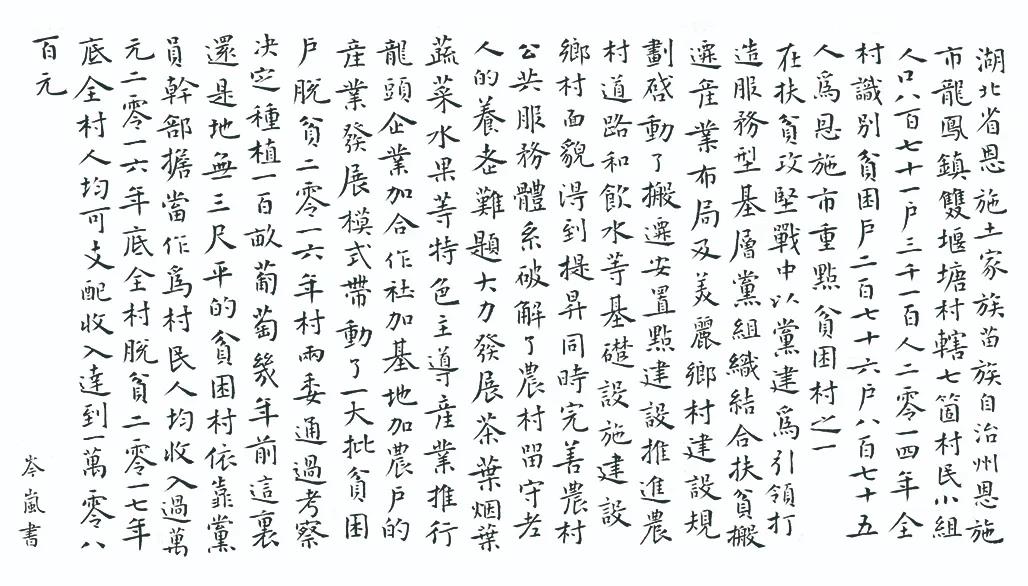 湖北省恩施土家族苗族自治州恩施
市龍鳳鎮雙堰塘村轄七箇村民小組
人口八百七十一户三千一百人二零一四年全
村識别貧困户二百七十六户八百七十五
人爲恩施市重點貧困村之一
在扶貧攻堅戰中以黨建爲引領打
造服務型基層黨組織結合扶貧搬
遷産業布局及美麗鄉村建設規
劃啓動了搬遷安置點建設推進農
村道路和飲水等基礎設施建設
鄉村面貌得到提昇同時完善農村
公共服務體系破解了農村留守老
人的養老難題大力發展茶葉烟葉
蔬菜水果等特色主導産業推行
龍頭企業加合作社加基地加農户的
産業發展模式帶動了一大批貧困
户脱貧二零一六年村兩委通過考察
决定種植一百畝葡萄幾年前這裏
還是地無三尺平的貧困村依靠黨
員幹部擔當作爲村民人均收入過萬
元二零一六年底全村脱貧二零一七年
底全村人均可支配收入達到一萬零八
百元
岑嵐書